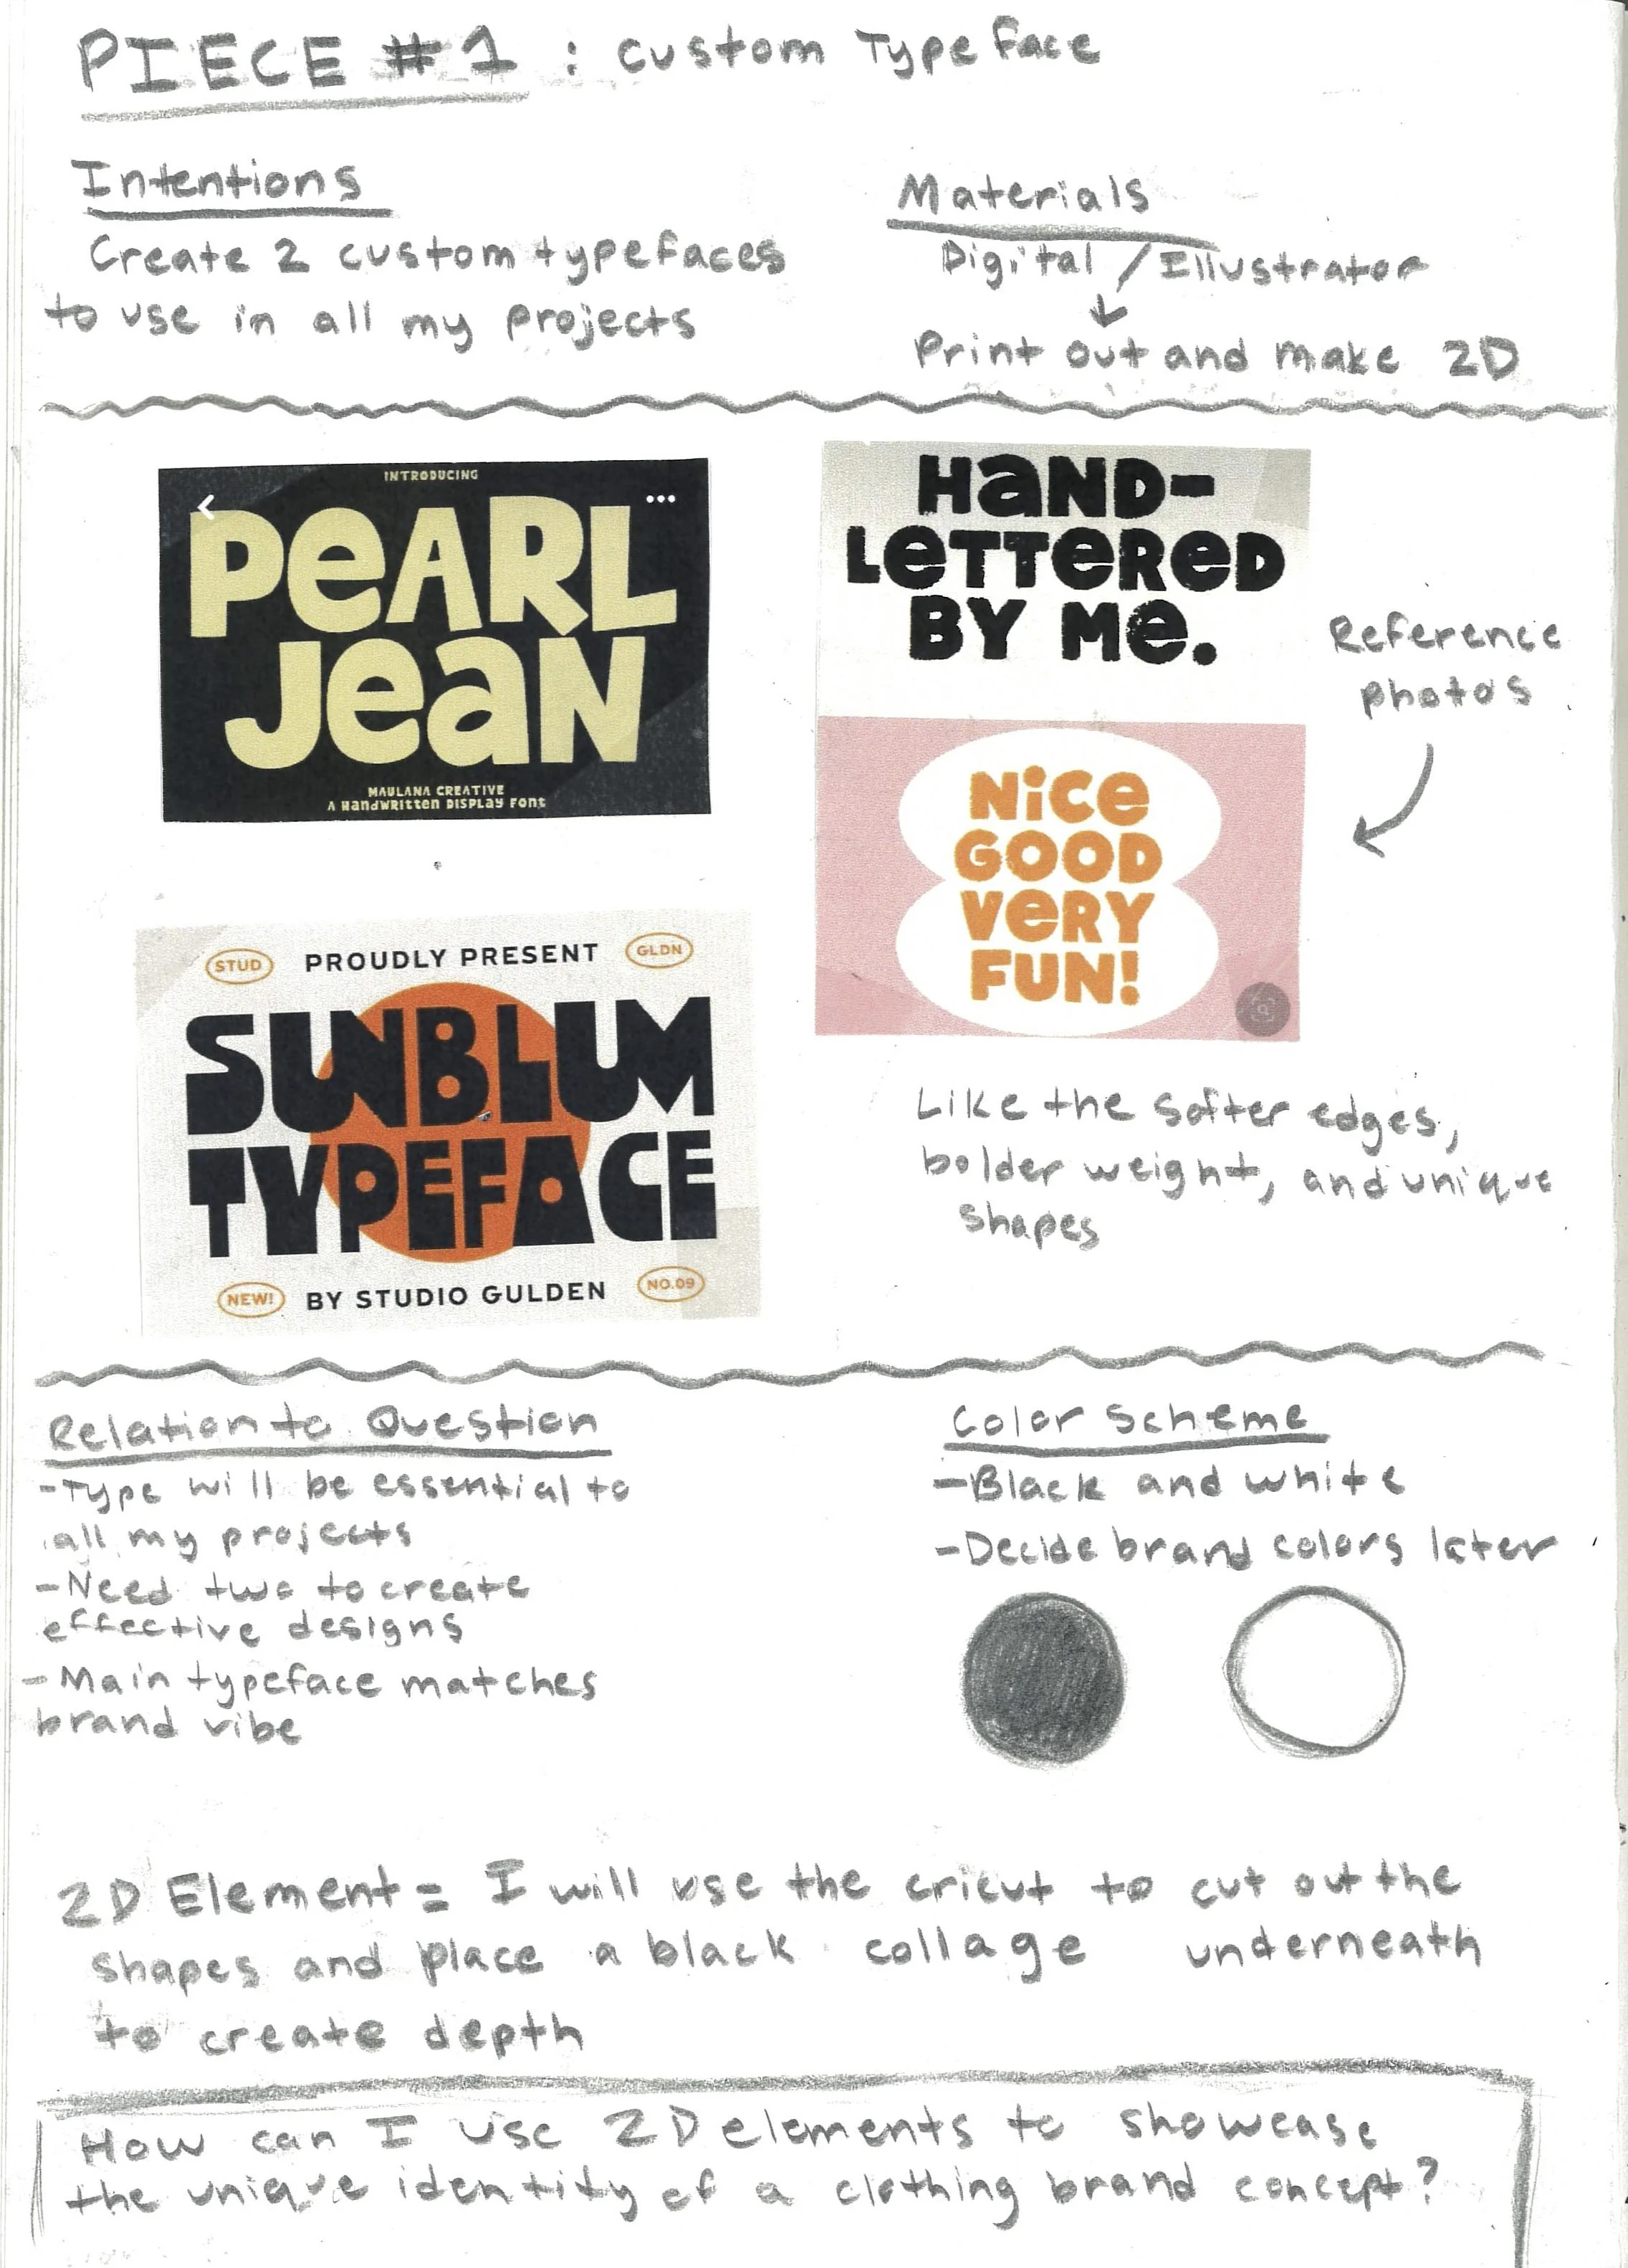 PIECE #1 : Custom Typeface
Intentions
Create 2 custom typefaces
to use in all my projects
Materials
Digital / Illustrator
Print out and make 2D
INTRODUCING
PeARL
Jean
MAULANA CREATIVE
A HandWRitten DISPLay Font
HaND-
LeTTeReD
BY Me.
Reference
photos
NiCe
GOOD
VeRY
FUN!
STUD
PROUDLY PRESENT
GLDN
SUNBLUM
TYPEFACE
NEW!
BY STUDIO GULDEN
NO.09
Like the softer edges,
bolder weight, and unique
shapes
Relation to Question
-Type will be essential to
all my projects
-Need two to create
effective designs
-Main typeface matches
brand vibe
Color Scheme
-Black and white
-Decide brand colors later
2D Element = I will use the cricut to cut out the
shapes and place a black collage underneath
to create depth
How can I use 2D elements to showcase
the unique identity of a clothing brand concept?